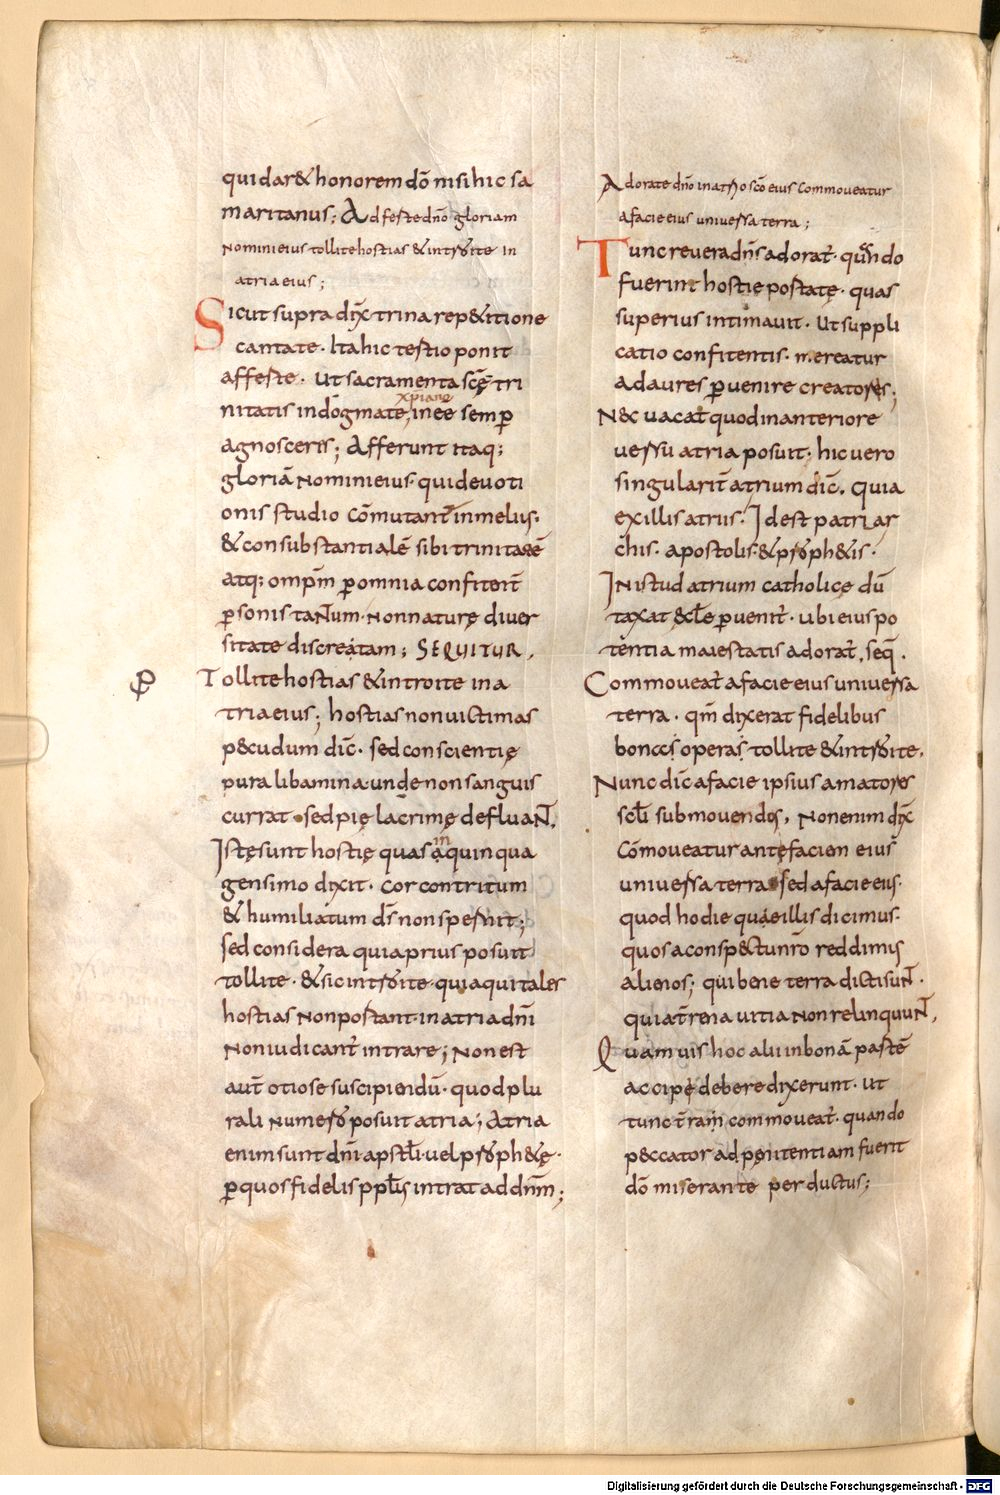 qui dar& honorem dō nisi hic sa
maritanus; Adfeste dn̄o gloriam
nomini eius tollite hostias & introite in
atria eius;
Sicut supra dix̄ trina rep&itione
cantate. Ita hic tertio ponit
afferte. ut sacramenta scē tri
xp̄iane
nitatis in dogmate, inee semp̄
agnosceris; Afferunt itaq;
gloriā nomini eius. qui devoti
onis studio cōmutant in melius.
& consubstantialē sibi trinitatē
atq; omp̄m p̄ omnia confitent̄
p̄sonis tantum. non naturę diver
sitate discretam; SEQUITUR,
Tollite hostias & introite in a
tria eius; hostias non victimas
p&cudum dic̄. sed conscientię
pura libamina. unde non sanguis
currat. sed pię lacrimę defluaNT.
Istę sunt hostię quas in quinqua
gensimo dixit. cor contritum
& humiliatum ds̄ non spernit;
sed considera quia prius posuit
tollite. & sic introite. quia qui tales
hostias non portant. in atria dn̄i
non iudicant̄ intrare; non est
aut̄ otiose suscipiendū. quod plu
rali numero posuit atria; Atria
enim sunt dn̄i apstl̄i. vel proph&ę.
p̄ quos fidelis ppl̄s intrat ad dnm̄;
Adorate dn̄o in atrio scō eius commoveatur
a facie eius universa terra;
Tunc revera dn̄s adorat̄. quando
fuerint hostię portatę. quas
superius intimavit. ut suppli
catio confitentis. mereatur
ad aures p̄venire creatoris;
N&c vacat quod in anteriore
versu atria posuit. hic vero
singularit̄ atrium dic̄. quia
ex illis atriis. Id est patriar
chis. apostolis. & proph&is.
In istud atrium catholicę dū
taxat &cl̄e p̄venit̄. ubi eius po
tentia maiestatis adorat̄. seq̄.
Commoveat̄ a facie eius universa
terra. qm̄ dixerat fidelibus
bonis operas tollite & introite.
Nunc dic̄ a facie ipsius amatores
scl̄i submovendos, non enim dix̄
cōmoveatur ante faciem eius
universa terra. sed a facie eius.
quod hodie quae illis dicimus.
quos a consp&tu nr̄o reddimus
alienos; qui bene terra dicti suNT.
quia t̄rena vitia non relinquuNT,
Quamvis hoc alii in bonā partē
accipe debere dixerunt. ut
tunc t̄ram commoveat̄. quando
p&ccator ad pęnitentiam fuerit
dō miserante perductus;
Digitalisierung gefördert durch die Deutsche Forschungsgemeinschaft - DFG